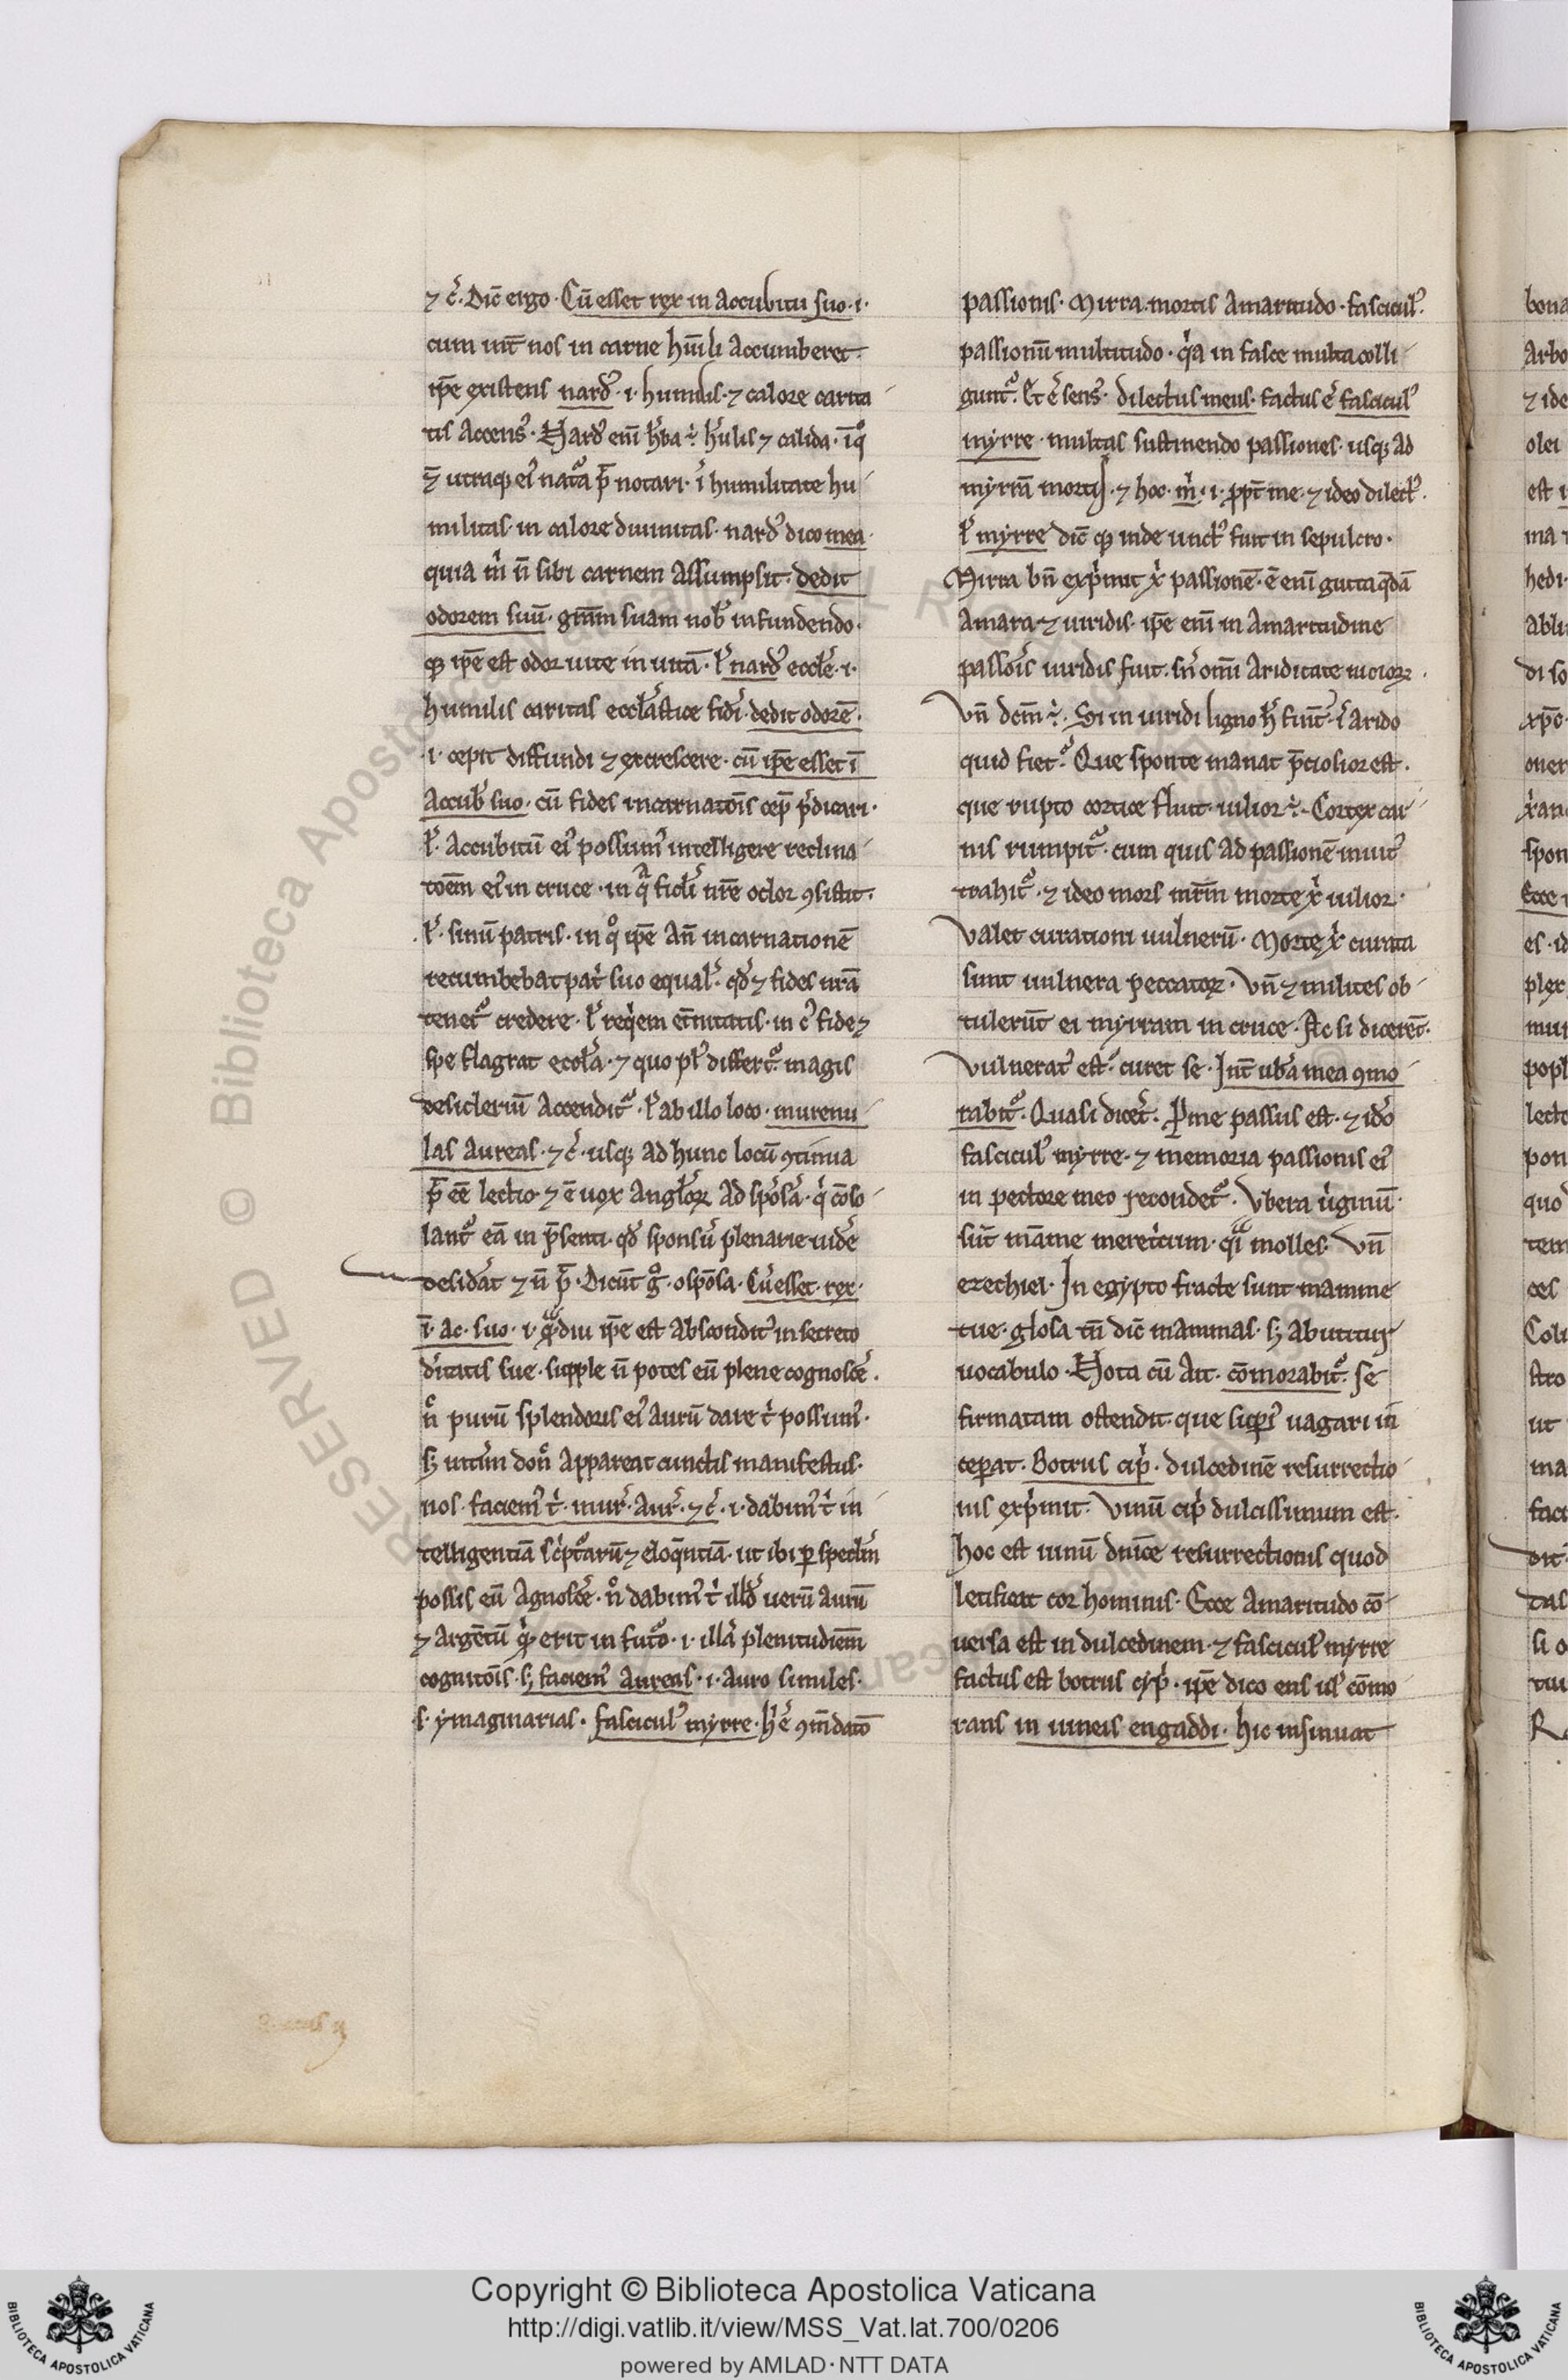 ⁊ c̄. Dic̄ ergo. Cū esset rex in accubitu suo .i.
cum int̄ nos in carne hūili accumberet.
ip̄e existens nardꝰ .i. humilis. ⁊ calore carita
tis accensꝰ. Nardꝰ eni h̄ba ÷ hūlis ⁊ calida.
utraq; notari. humilitate hu
militas. in calore diuinitas. nardꝰ dico mea.
quia m̄ n̄ sibi carnem assumpsit. dedit
odorem suū. gr̄am suam nob̄ infundendo.
ip̄e est odor uite in uitā. ł nardꝰ eccl̄e .i.
humilis caritas eccl̄astice fidei. dedit odorē.
.i. cepit diffundi ⁊ excrescere. cū ip̄e esset ī
accub̄ suo. cū fides incarnatōis cep̄ p̄dicari.
ł. accubitū eiꝰ possumꝰ intelligere reclina
toēm eiꝰ in cruce. in nr̄e odor ꝯsistit.
ł. sinū patris. in qͦ ip̄e an̄ incarnationē
recumbebat pat̄ suo equal̄. ⁊ fides nr̄a
tenet᷑ credere. ł reqͥem et̄nitatis. in fide ⁊
spe flagrat eccl̄a. ⁊ quo pl̄ differt᷑ magis
desiderium accendit᷑. ł ab illo loco. murenu
las aureas. ⁊ c̄. usq; ad hunc locū ꝯtinua
p̄ eē lectio. ⁊ ē uox angl̄oꝝ ad spōsā. qͥ cōso
lant᷑ eā in p̄senti. sponsū plenarie uidē
desid̄at ⁊ n̄ p̄. Dicūt gͦ. o spōsa. Cū esset. rex.
ī. ac. suo .i. qᵃdiu ip̄e est absconditꝰ in secreto
diͥtatis sue. supple n̄ potes eū plene cognosc̄e.
nͦ purū splendoris eiꝰ aurū dare tͥ possumꝰ.
appareat cunctis manifestus.
nos. faciemꝰ tͥ. mur̄. aur̄. ⁊ c̄. .i. dabimꝰ tͥ in
telligentiā sc̄ptᵃrū ⁊ eloq̄ntiā. ut ibi ꝑ specl̄m
possis eū agnosc̄e. nͦ dabimꝰ tͥ uerū aurū
⁊ argētū erit in futͦo .i. plenitudiēm
cognitōis. faciemꝰ aureas .i. auro similes.
.s. ymaginarias. fasciculꝰ myrre. h̄ ē ꝯm̄datō
passionis. Mirra. mortis amaritudo. fasciculꝰ.
passionū multitudo. qͥa in fasce multa colli
gunt᷑. Et ē sensꝰ. dilectus meus. factus ē fasciculꝰ
myrre. multas sustinendo passiones. usq; ad
myrrā mortis. ⁊ hoc. m̄ .i. ꝓpt̄ me. ⁊ ideo dilectꝰ.
ł myrre dic̄ inde unctꝰ fuit in sepulcro.
Mirra bn̄ exp̄mit xͥ passionē. ē eni gutta q̄dā
amara ⁊ uiridis. ip̄e eni in amaritudine
passiōis uiridis fuit. sn̄ omī ariditate uicioꝝ.
Vn̄ dcm̄ ÷. Si in uiridi ligno h̄ fiūt. ī arido
quid fiet? Que sponte manat p̄ciosior est.
que rupto cortice fluit. uilior ÷. Cortex car
nis rumpit᷑. cum quis ad passionē inuitꝰ
trahit᷑. ⁊ ideo mors mr̄m morte xͥ uilior.
Valet curationi uulnerū. Morte xͥ curata
sunt uulnera peccatoꝝ. Vn̄ ⁊ milites ob
tulerūt ei myrram in cruce. Ac si dicerēt.
Vulneratꝰ est. curet se. Int̄ ub̄a mea ꝯmo
rabit᷑. Quasi dicet̄. ꝑ me passus est. ⁊ ido
fasciculꝰ myrre. ⁊ memoria passionis eiꝰ
in pectore meo recondet᷑. Vbera uͥginū.
sūt māme meretͥcum. molles. Vn̄
ezechiel. In egypto fracte sunt mamme
tue. glosa tn̄ dic̄ mammas. abutitur
uocabulo. Nota cū ait. cōmorabit᷑. se
firmatam ostendit. que suꝑiꝰ uagari in
ceperat. Botrus cip̄. dulcedinē resurrectio
nis exp̄mit. Vinū cip̄ dulcissimum est.
hoc est uinū dn̄ice resurrectionis quod
letificat cor hominis. Ecce amaritudo cō
uersa est in dulcedinem. ⁊ fasciculꝰ myrre
factus est botrus cyp̄. ip̄e dico ens ul̄ cōmo
rans in uineis engaddi. hic insinuat
Copyright © Biblioteca Apostolica Vaticana
http://digi.vatlib.it/view/MSS_Vat.lat.700/0206
powered by AMLAD · NTT DATA